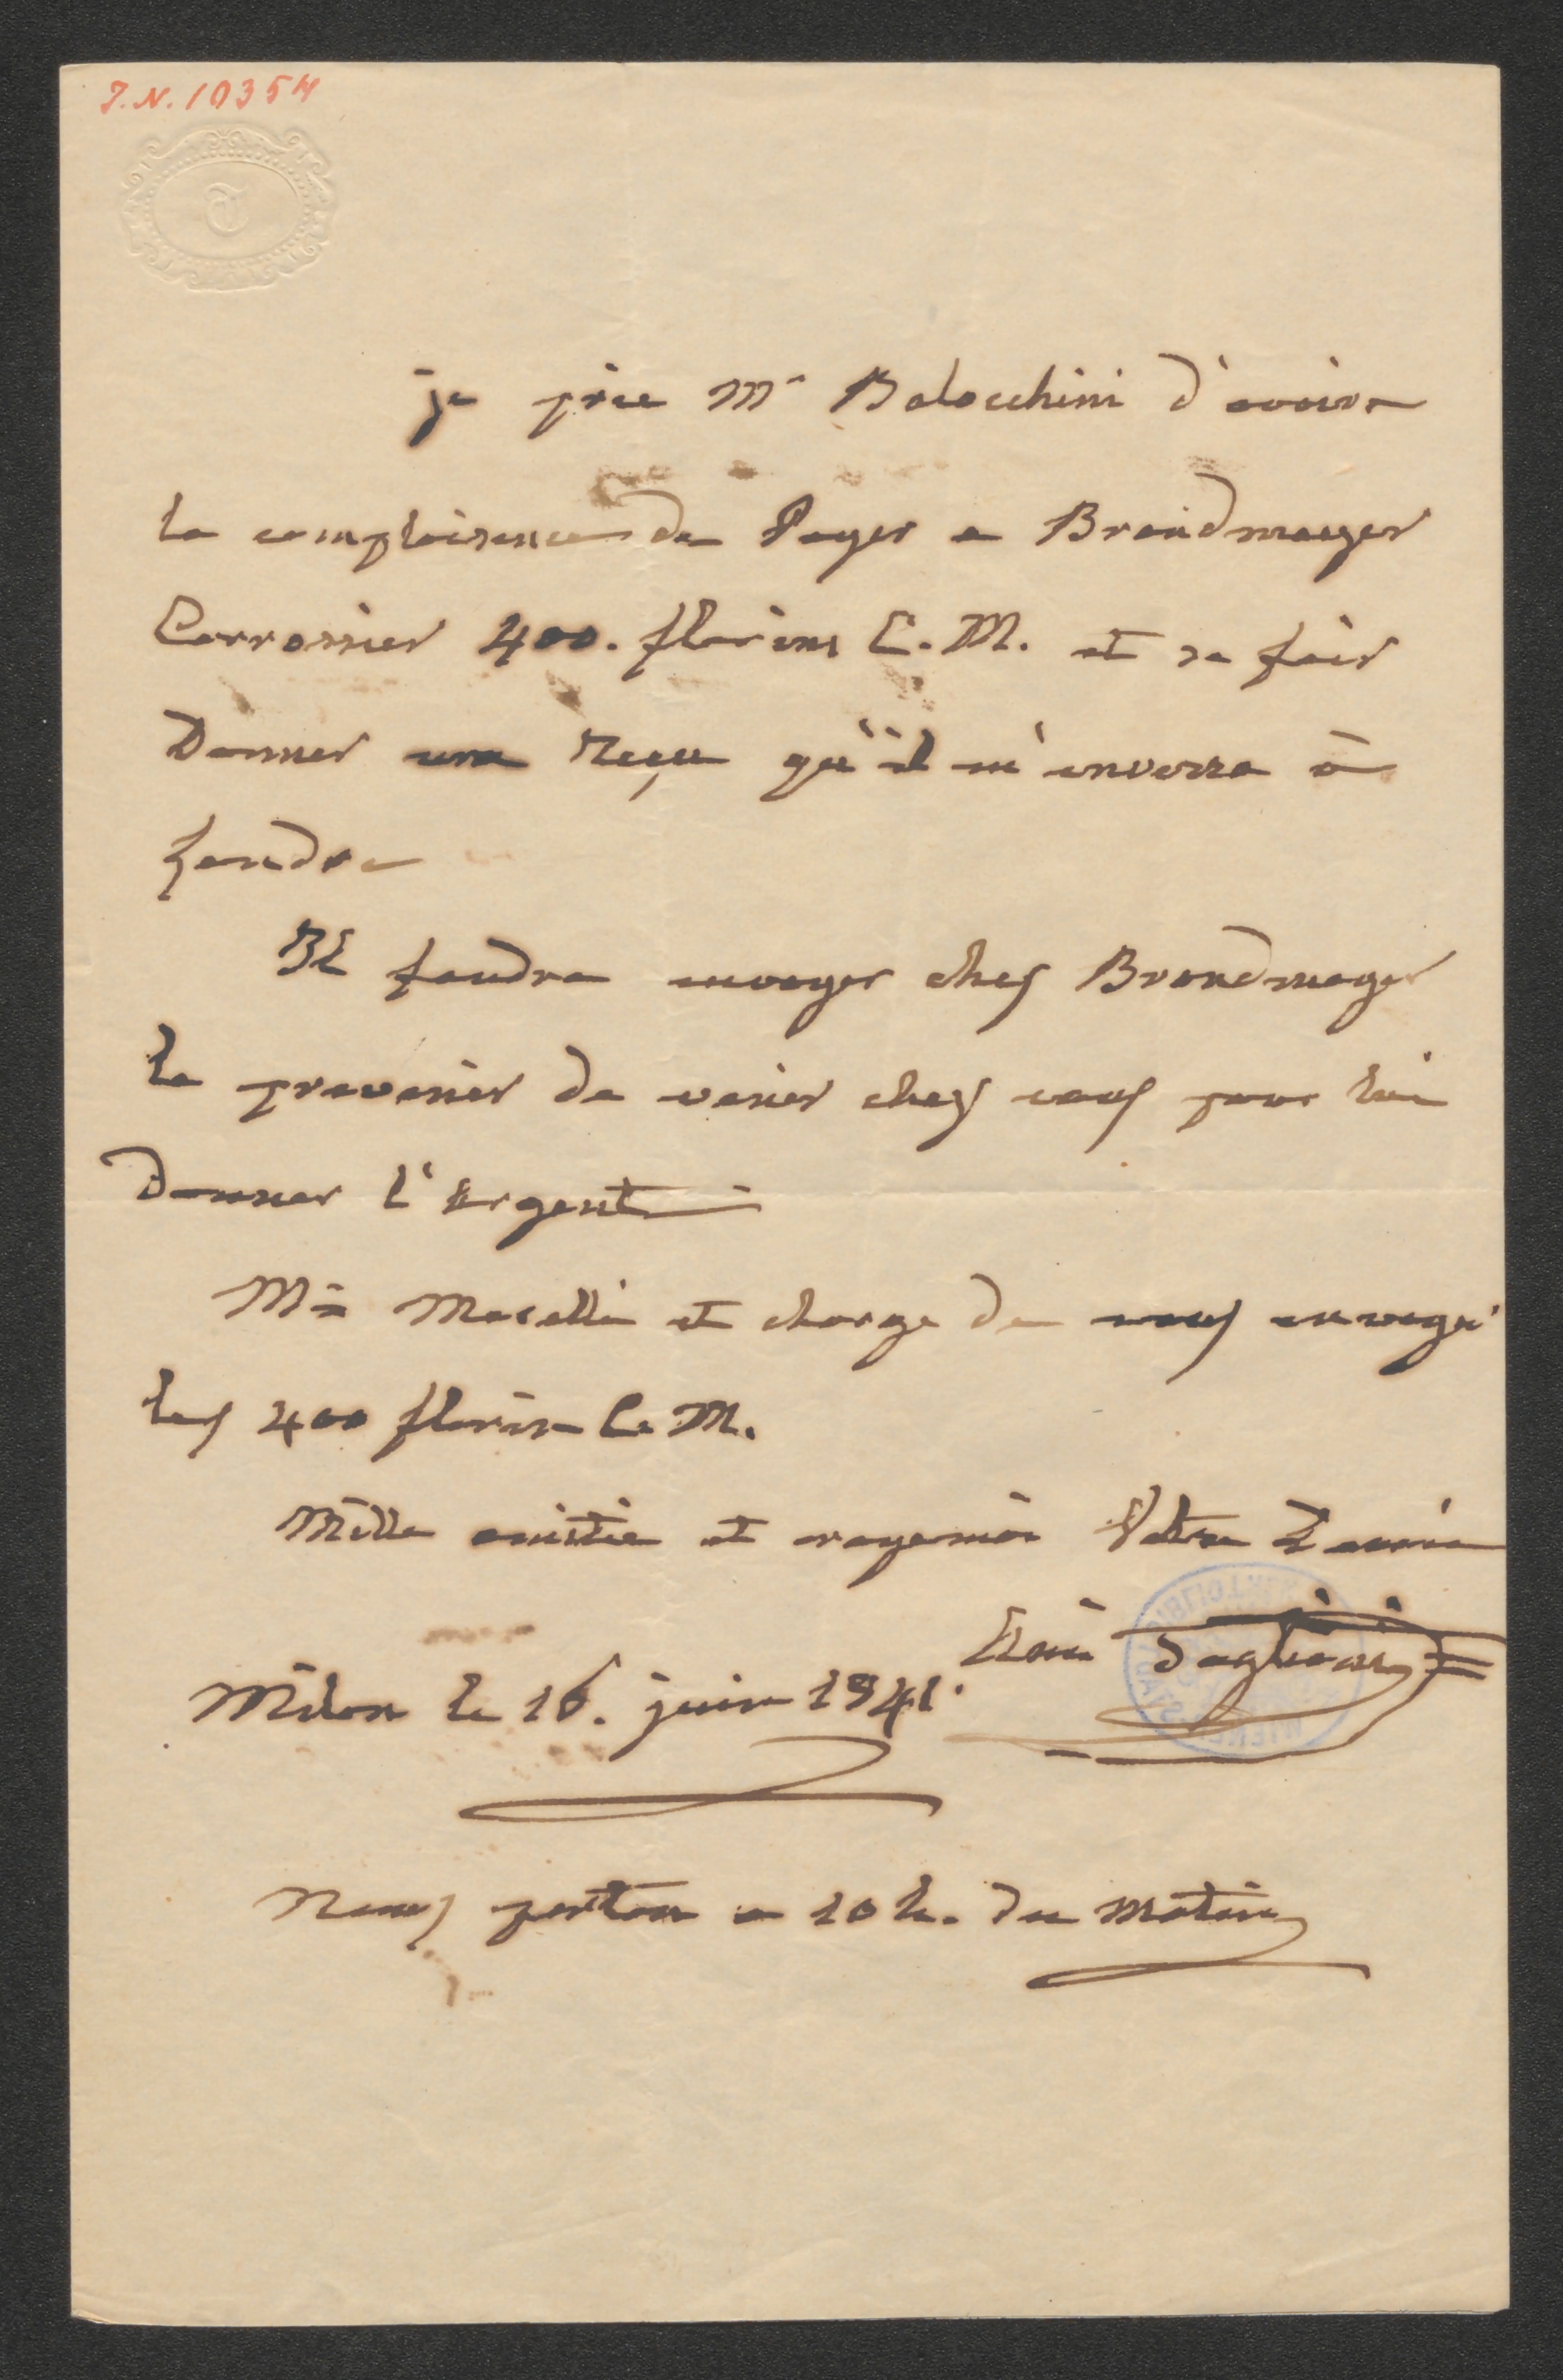 J.N. 10354
T
je prie Mr Balocchini d'avoire
la complaisence de Payer a Brandmayer
Carrossier 400. florins C. M. et se fair
Donner une Reçu qu'il m'enverra à
Londre
Il faudra envoyer chez Brandmayer
le prevenier de venier chez vous pour lui
donner l'Argent
Mr Merelli et charge de vous envoyer
les 400 florin C. M.
Mille amitie et croyemoi Votre
Taglioni
Milan le 16. juin 1841.
Nous parton a 10 h. du matin